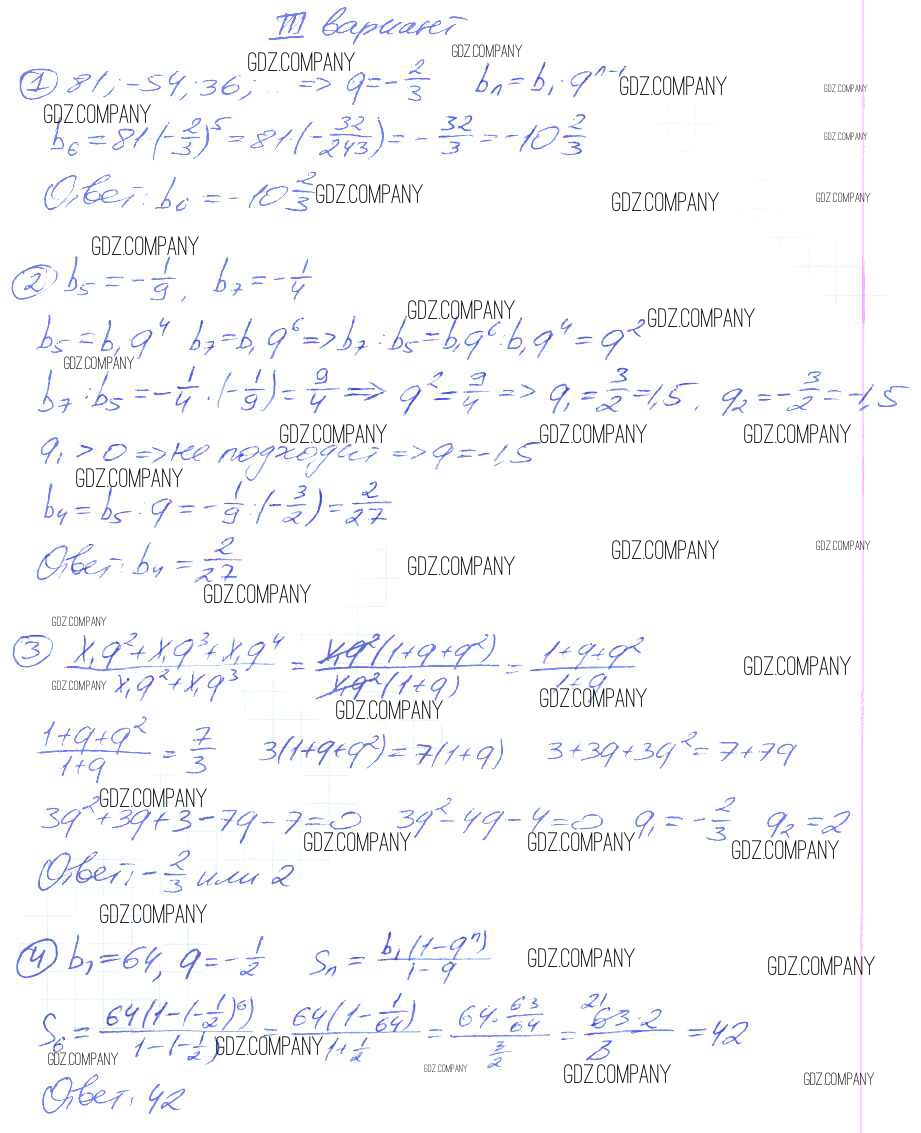 III вариант
GDZ.COMPANY GDZ.COMPANY
① 81; -54; 36; ... => q = -2/3 bₙ = b₁·qⁿ⁻¹ GDZ.COMPANY GDZ.COMPANY
GDZ.COMPANY
b₆ = 81(-2/3)⁵ = 81·(-32/243) = -32/3 = -10 2/3 GDZ.COMPANY
Ответ: b₆ = -10 2/3 GDZ.COMPANY GDZ.COMPANY GDZ.COMPANY
GDZ.COMPANY
② b₅ = -1/9, b₇ = -1/4
GDZ.COMPANY GDZ.COMPANY
b₅ = b₁q⁴ b₇ = b₁q⁶ => b₇ : b₅ = b₁q⁶ : b₁q⁴ = q²
GDZ.COMPANY
b₇ : b₅ = -1/4 · (-1/9) = 9/4 => q² = 9/4 => q₁ = 3/2 = 1,5. q₂ = -3/2 = -1,5
GDZ.COMPANY GDZ.COMPANY GDZ.COMPANY
q₁ > 0 => не подходит => q = -1,5
GDZ.COMPANY
b₄ = b₅ : q = -1/9 : (-3/2) = 2/27
GDZ.COMPANY GDZ.COMPANY
Ответ: b₄ = 2/27 GDZ.COMPANY
GDZ.COMPANY
GDZ.COMPANY
③ (x₁q² + x₁q³ + x₁q⁴)/(x₁q² + x₁q³) = (x₁q²(1+q+q²))/(x₁q²(1+q)) = (1+q+q²)/(1+q) GDZ.COMPANY
GDZ.COMPANY GDZ.COMPANY
GDZ.COMPANY
(1+q+q²)/(1+q) = 7/3 3(1+q+q²) = 7(1+q) 3+3q+3q² = 7+7q
GDZ.COMPANY
3q² + 3q + 3 - 7q - 7 = 0 3q² - 4q - 4 = 0 q₁ = -2/3 q₂ = 2
GDZ.COMPANY GDZ.COMPANY GDZ.COMPANY
Ответ: -2/3 или 2
GDZ.COMPANY
④ b₁ = 64, q = -1/2 Sₙ = b₁(1-qⁿ)/(1-q) GDZ.COMPANY GDZ.COMPANY
S₆ = 64(1-(-1/2)⁶)/(1-(-1/2)) = 64(1-1/64)/(1+1/2) = (64·63/64)/(3/2) = 21 63·2/3 = 42
GDZ.COMPANY GDZ.COMPANY GDZ.COMPANY GDZ.COMPANY GDZ.COMPANY
Ответ: 42